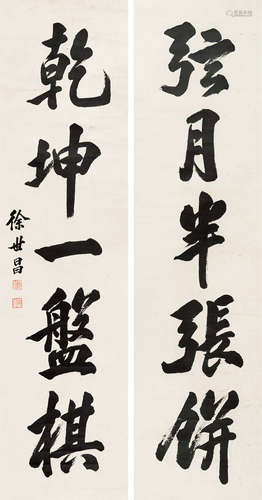 弦月半張餅
乾坤一盤棋
徐世昌